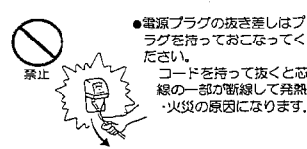 ●電源プラグの抜き差しはプ
ラグを持っておこなってく
ださい。
コードを持って抜くと芯
線の一部が断線して発熱
・火災の原因になります。
禁止